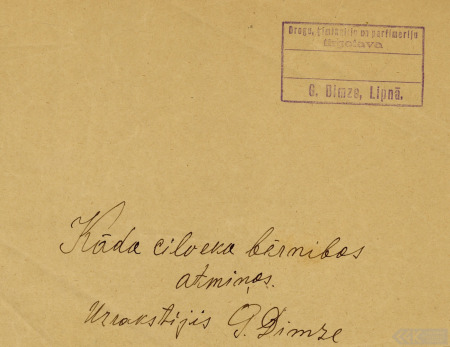 Drogu, ķimikaliju un parfimeriju
tirgotava
G. Dimze, Lipnā.
Kāda cilveka bērnibas
atmiņas.
Uzrakstijis G. Dimze